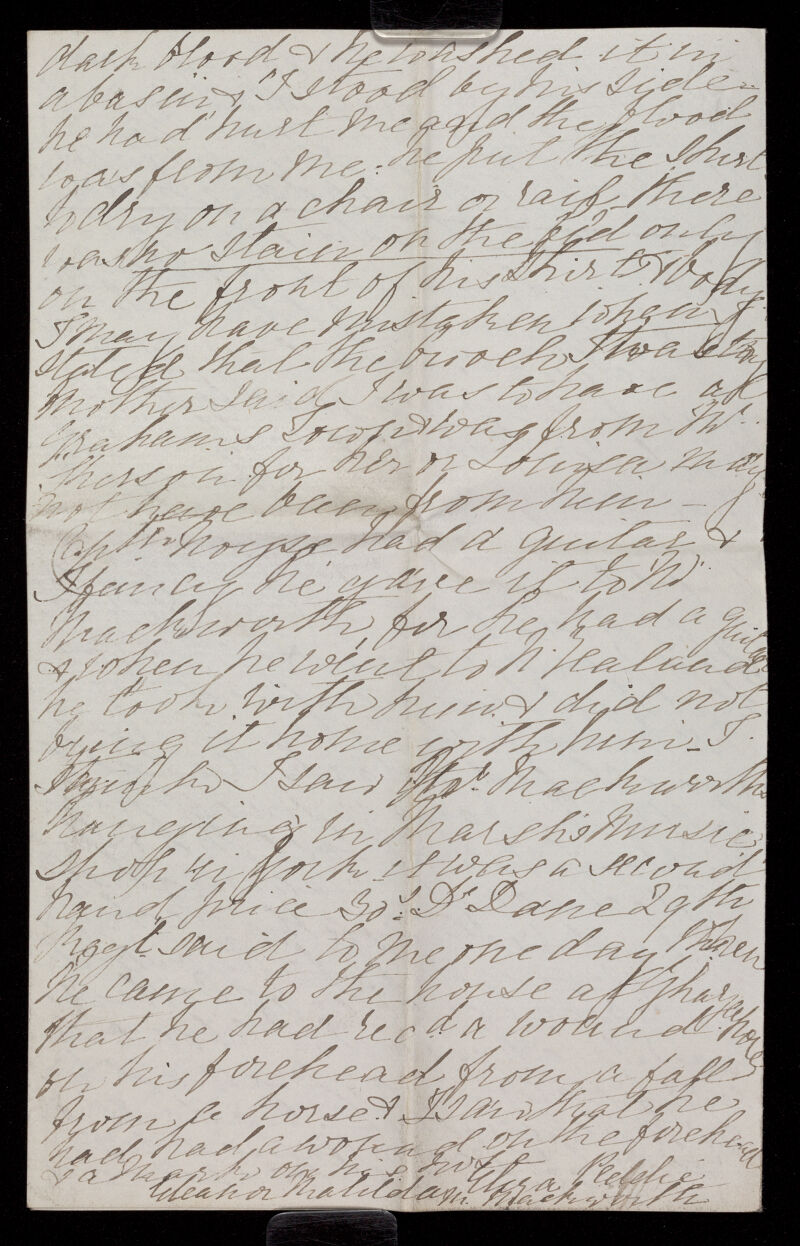 dark blood & he washed it in
a basin & I stood by his side
he had hurt me and the blood
was from me. he put the shirt
to dry on a chair or rail there
was no stain on the only
on the front of his shirt & body
I may have mistaken when I
stated that the I was
Mother said I was to have at
Grahams Town was from Mr
for her or Louisa may
not have been from him –
Captn had a guitar &
I fancy he gave it to Mr
Mackworth for he had a guitar
& when he went to N Zealand
he took with him & did not
bring it home with him – I
think I saw Mr Mackworths
hanging in Marsh's Music
shop in York it was a second
hand price 30s. Dr Dane 29th
Regt. said to me one day when
he came to the house at
that he had recd a wound
on his forehead from a fall
from a horse & I saw that he
had had a wound on the forehead
& a mark on his
Eleanor Matilda Peddie
Mackworth